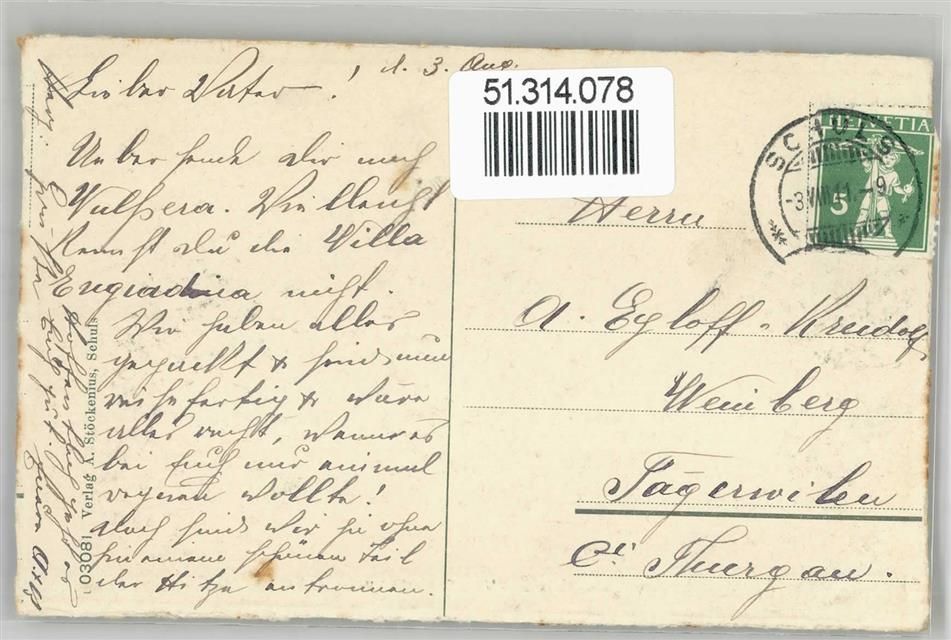 d. 3. Aug.
Lieber Vater!
Uebersende Dir noch
Vulpera. Vielleicht
kennst du die Villa
Engiadina nicht.
Wir haben alles
gepackt & sind nun
reisefertig & wäre
alles recht, wenn es
bei Euch nur einmal
regnen wollte!
doch sind wir ja ohne
einen schönen Teil
der Hitze entronnen.
Herzl.
03081 Verlag A. Stöckenius, Schuls
51.314.078
HELVETIA
5
SCHULS
-3.VIII.11.-9
Herrn
A. Egloff-Kreidolf
Weinberg
Tägerwilen
Ct. Thurgau.